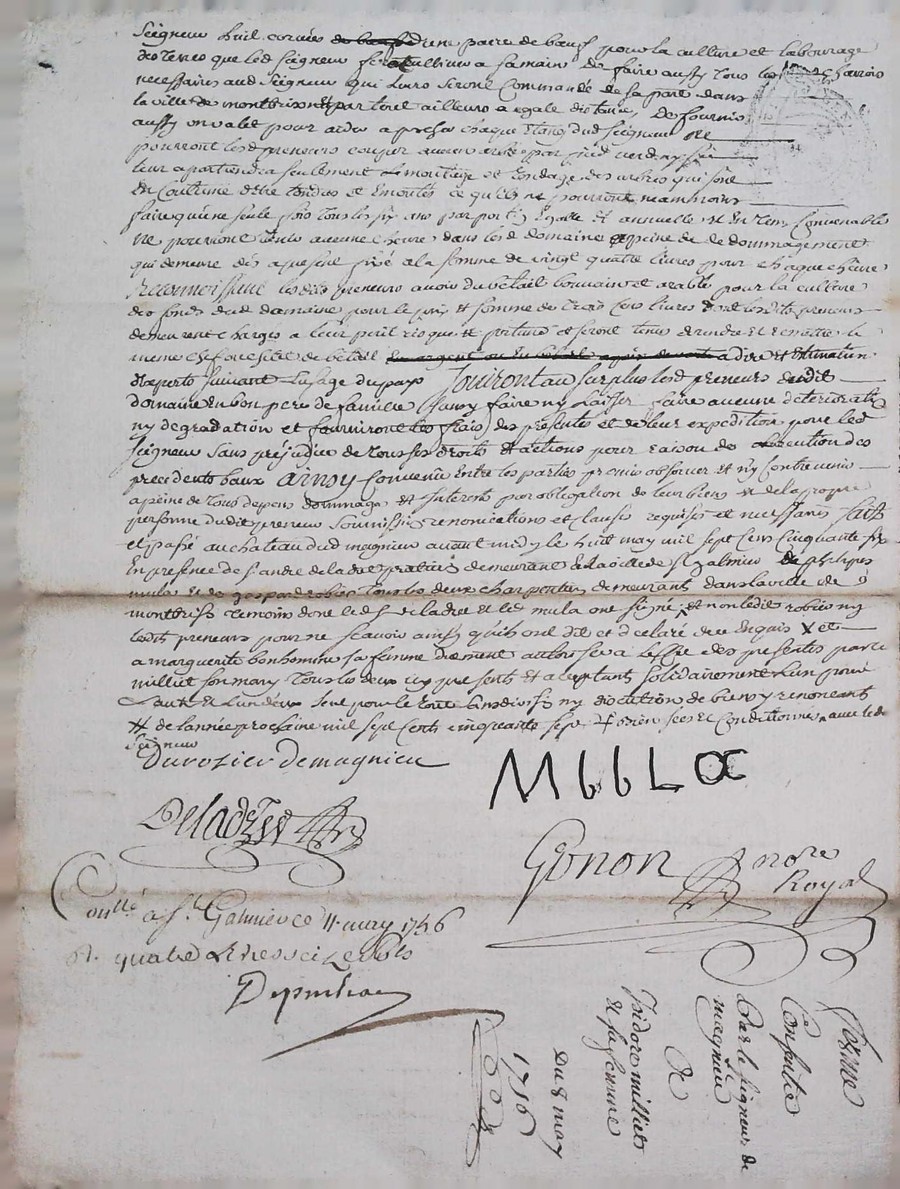 Seigneur huit corvées une paire de bœuf pour la culture et labourage
des terres que led seigneur fera cultiver a sa main De faire aussy tous les charrois
necessaires aud Seigneur qui leurs seront Commandé de sa part dans
la ville de montbrison et par tout ailleurs a egale distance, De fournir
aussy un valet pour aider a pescher chaque Etang dud seigneur Ne
pourront lesd preneurs couper aucun arbre par pied verd ny sec
leur apartiendra seulement Le montage et tondage des arbres qui sont
En Coutume d'etre tondus et Emontés ce qu'ils ne pourront neammoins
faire qu'une seule fois tous les six ans par portion Egalle et annuelle et En tems Convenable
Ne pourront tenir aucune chevre dans led domaine a peine de dedommagement
qui demeure dés apresent fixé a la somme de vingt quatre livres pour chaque chevre
Reconnoissent lesdits preneurs avoir du bétail pour la culture
des fonds dud domaine pour le prix et somme de trois Cens livres dont lesdits preneurs
demeurent chargés a leur peril risque et fortune et seront tenus de rendre
meme de betail a dire et Estimation
d'experts suivant L'usage du pays Jouiront au surplus lesd preneurs dudit
domaine en bon pere de famille sans y faire ny laisser faire aucune deterioration
ny degradation et fourniront les frais des presentes et de leur expedition pour led
seigneur sans préjudice de tous ses droits et actions pour raison de Lexecution des
precedents baux Ainsy Convenu Entre les parties promis observer et n'y Contrevenir
a peine de tous depens dommages et Interets par obligation de leurs biens et de la propre
personne dudit preneur soumissions renonciations et clauses requises et necessaires Fait
et passé au chateau dud magnieu avant midy le huit may mil sept Cens Cinquante six
En presence de Sr andre de la pratitien demeurant de la ville de St galmier
mula et de gaspard robier tous les deux charpentier demeurant dans la ville de
montbrison temoins dont led S et led mula ont signé et non ledit robier ny
ledit preneurs pour ne scavoir ainsy qu'ils ont dit et declaré de ce Enquis X et
a marguerite bonhomme sa femme düement authorisée a Leffet des presentes par led
milliet son mary tous les deux icy presents et acceptant solidairement L'un pour
L'autre et L'un d'eux seul pour le tout sans division ny discution de biens y renonceant
# de l'année prochaine mil sept Cents cinquante sept et Conditionnée avec led
Seigneur
Durozier demagnieu
MULLA
Gonon nore
Royal
Conllé a St. Galmier ce 11. may 1756
R. quatre Livres seize sols
Ferme
Consentie
Par le Seigneur de
magnieu
A
Isidore milliet
et sa femme
Du 8 may
1756